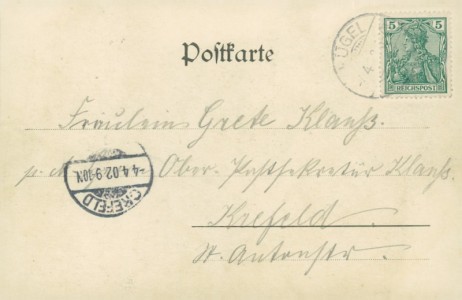 ÜGEL
5 5
REICHSPOST
Postkarte
Fräulein Grete Klauß.
p. Ober-Postsekretär Klauß.
Krefeld.
St. Antonstr.
CREFELD
4.4.02.9-10N.